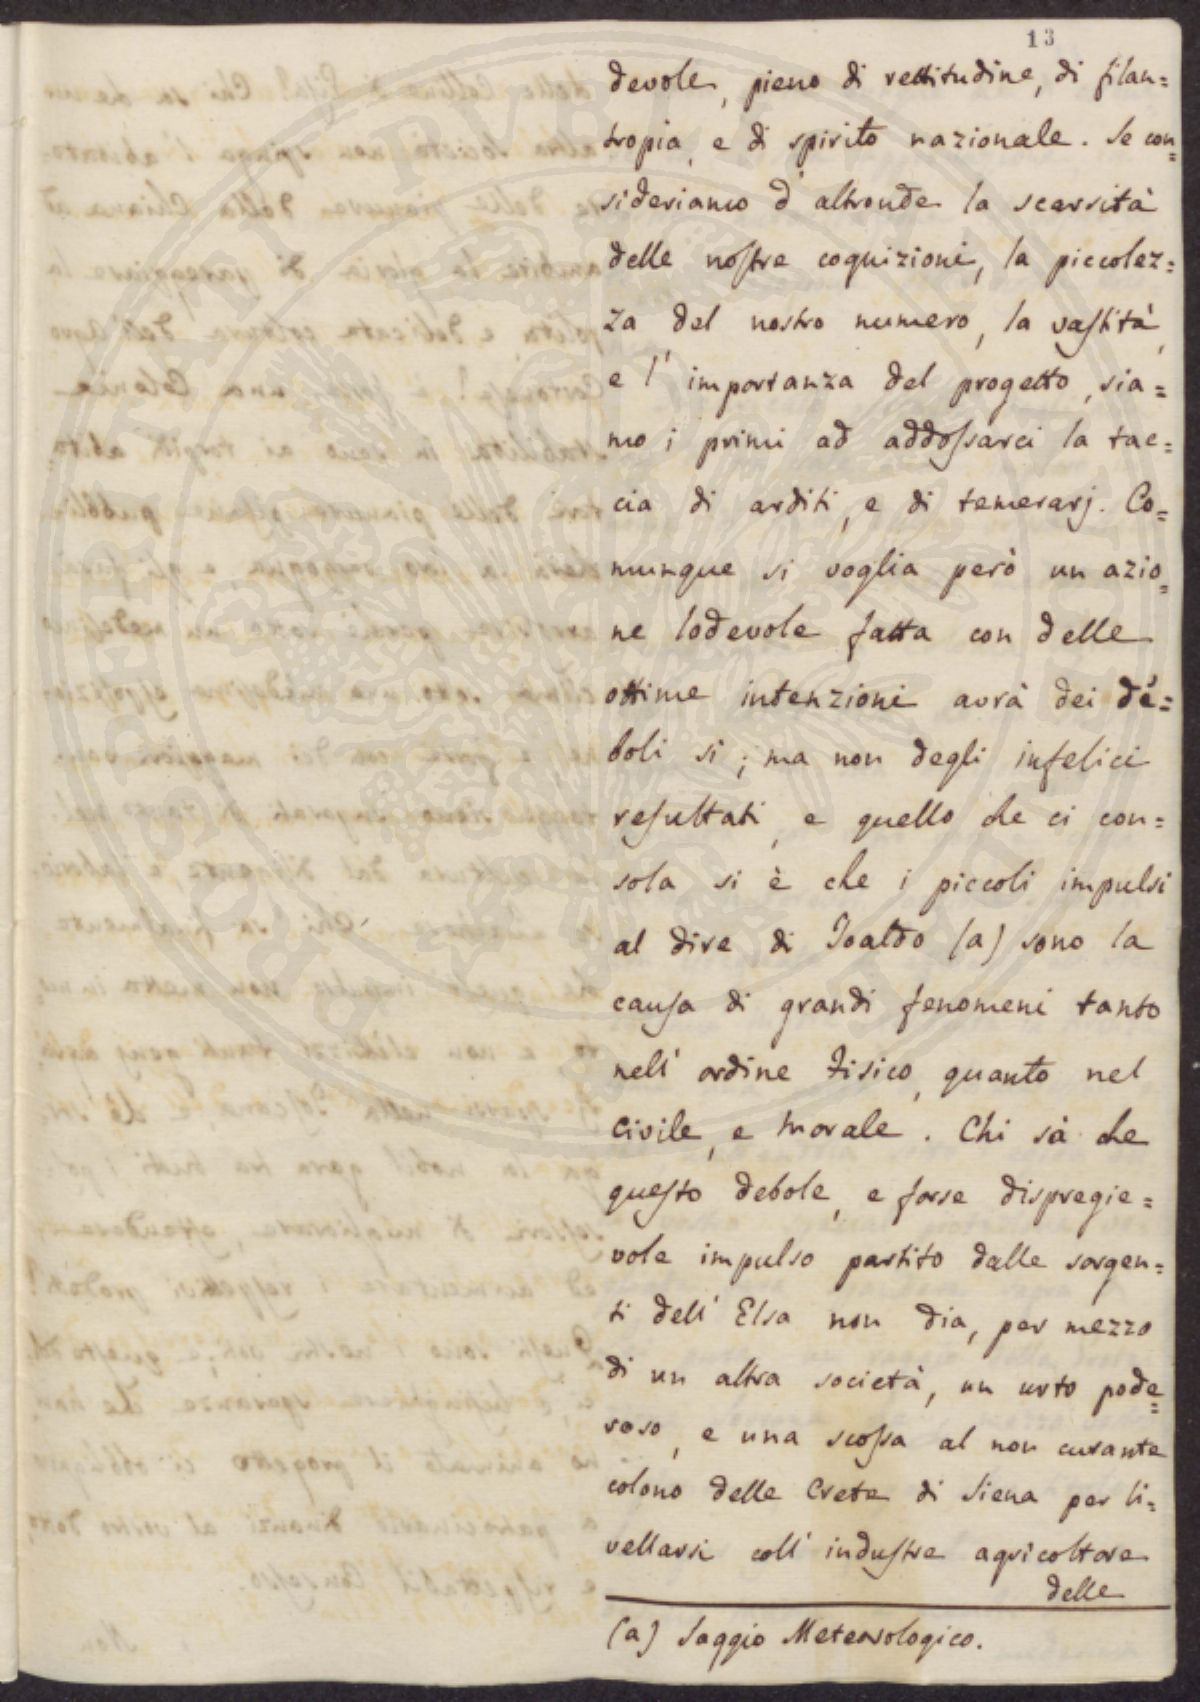 13
devole, pieno di rettitudine, di filan=
tropia, e di spirito nazionale. Se con=
sideriamo d'altronde la scarsità
delle nostre cognizioni, la piccolez=
za del nostro numero, la vastità,
e l'importanza del progetto, sia=
mo i primi ad addossarci la tac=
cia di arditi, e di temerarj. Co=
munque si voglia però un azio=
ne lodevole fatta con delle
ottime intenzioni avrà dei de=
boli sì; ma non degli infelici
resultati, e quello che ci con=
sola si è che i piccoli impulsi
al dire di Toaldo (a) sono la
causa di grandi fenomeni tanto
nell'ordine Fisico, quanto nel
Civile, e Morale. Chi sà che
questo debole, e forse dispregie=
vole impulso partito dalle sorgen=
ti dell'Elsa non dia, per mezzo
di un altra società, un urto pode=
roso, e una scossa al non curante
colono delle Crete di Siena per li=
vellarsi coll'industre agricoltore
delle
(a) Saggio Meteorologico.